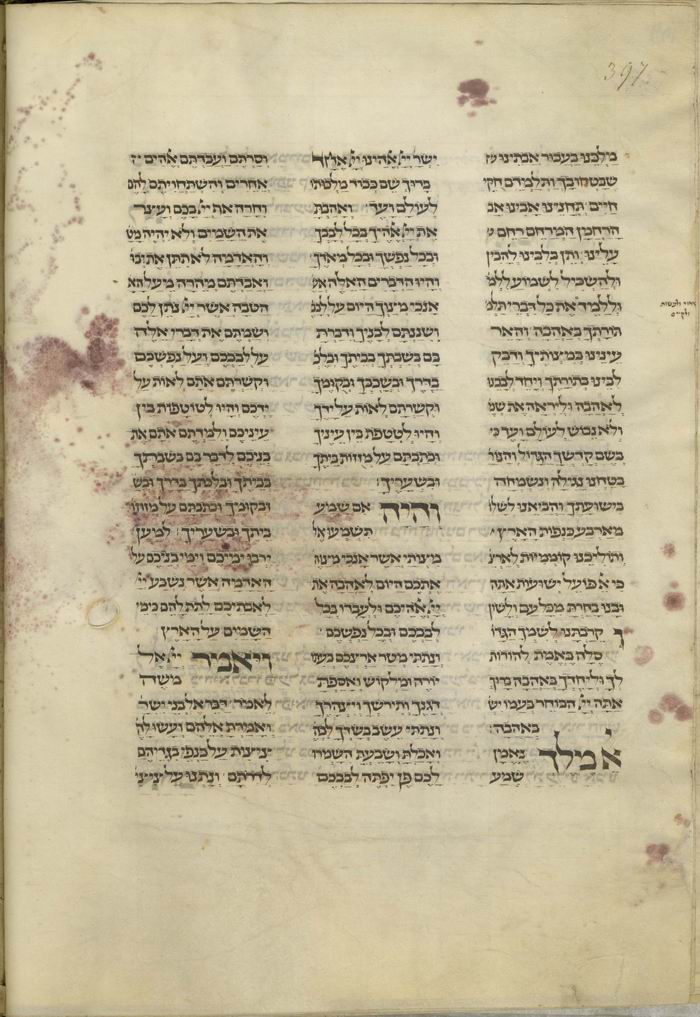 397
מילכנו בעבור אבתינו ש
שבטחו בך ותלמדם חקי
חיים תחנינו אבינו אב
הרחמן המרחם רחם ע
עלינו ותן בלבינו להבין
ולהשכיל לשמוע ללמ
וללמיד את כל דברי תלמ
תורתך באהבה והאר
עינינו במיצותיך ודבק
לבינו בתורתך ויחד לבבנו
לאהבה וליראה את שמ
ולא נבוש לעולם ועד כי
בשם קדשך הגדול והנור
בטחנו נגילה ונשמחה
בישועתך והביאנו לשלו
מארבע כנפות הארץ
ותוליכנו קוממיות לארצ
כי אל פועל ישועות אתה
ובנו בחרת מכל עם ולשון
וקרבתנו לשמך הגדו
סלה באמת להודות
לך וליחדך באהבה ברוך
אתה יי׳ הבוחר בעמו יש
באהבה:
אל מלך נאמן
שמע
ישר׳ יי׳ אלהינו יי׳ אחד
ברוך שם כבוד מלכותו
לעולם ועד: ואהבת
את יי׳ אלהיך בכל לבבך
ובכל נפשך ובכל מאודך
והיו הדברים האלה אש
אנכי מצוך היום על לבב
ושננתם לבניך ודברת
בם בשבתך בביתך ובלכ
בדרך ובשכבך ובקומך
וקשרתם לאות על ידך
והיו לטטפת בין עיניך
וכתבתם על מזוזות ביתך
ובשעריך:
והיה אם שמוע
תשמעו אל
מיצותי אשר אנכי מצוה
אתכם היום לאהבה את
יי׳ אלהיכם ולעבדו בכל
לבבכם ובכל נפשכם
ונתתי מטר ארצכם בעתו
יורה ומלקוש ואספת
דגנך ותירשך ויצהרך
ונתתי עשב בשדך לבה
ואכלת ושבעת השמרו
לכם פן יפתה לבבכם
וסרתם ועבדתם אלהים
אחרים והשתחויתם להם
וחרה אף יי׳ בכם ועצר
את השמים ולא יהיה מט
והאדמה לא תתן את יבו
ואבדתם מהרה מעל הא
הטבה אשר יי׳ נתן לכם
ושמתם את דברי אלה
על לבבכם ועל נפשכם
וקשרתם אתם לאות על
ידכם והיו לטוטפות בין
עיניכם ולמדתם אתם את
בניכם לדבר בם בשבתך
בביתך ובלכתך בדרך ובש
ובקומך וכתבתם על מזוזו
ביתך ובשעריך: למען
ירבו ימיכם וימי בניכם על
האדמה אשר נשבע יי׳
לאבתיכם לתת להם כימי
השמים על הארץ
ויאמר יי׳ אל
משה
לאמר: דבר אל בני ישר
ואמרת אלהם ועשו לה
ציצית על כנפי בגדיהם
לדרתם ונתנו על ציצי